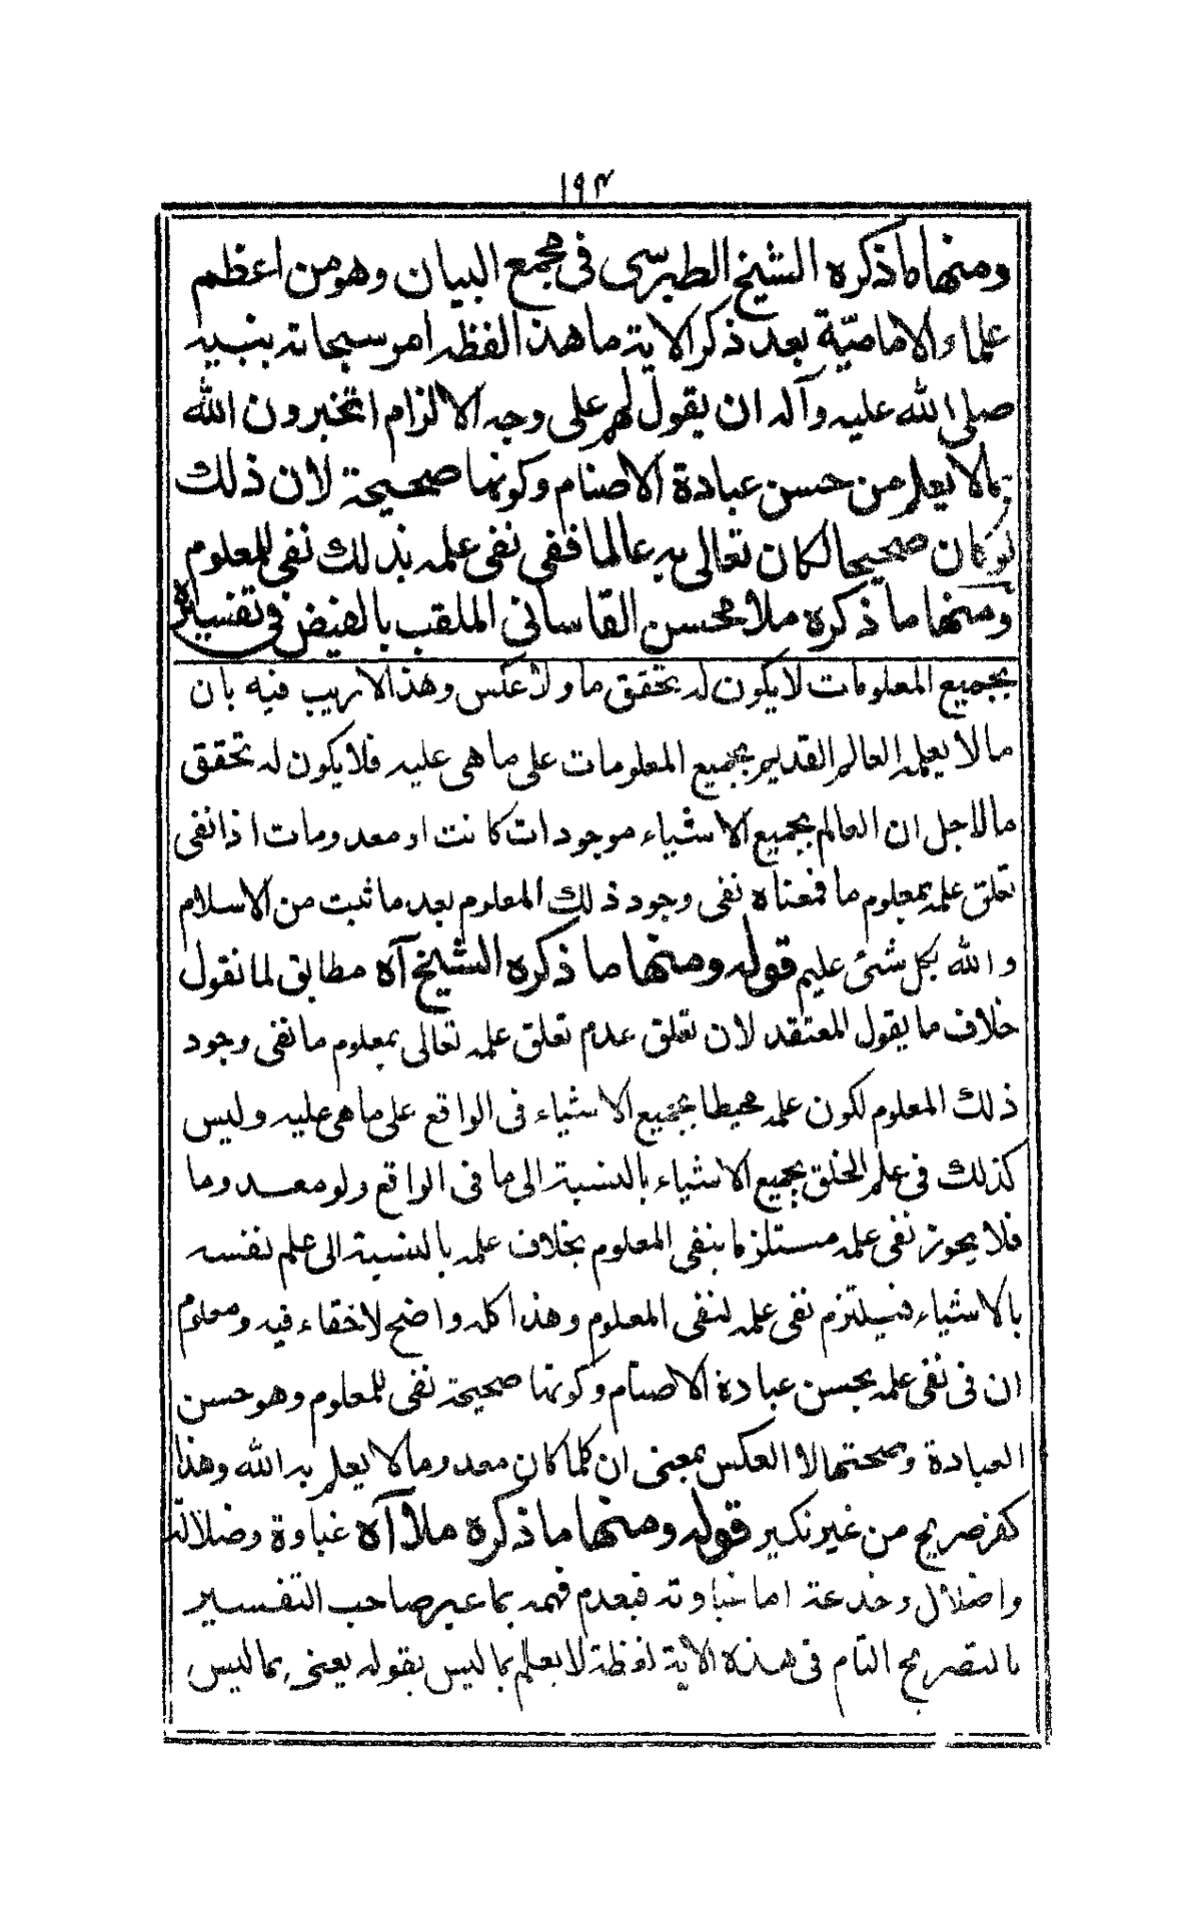 ١٩٤
ومنها ما ذكره الشيخ الطبرسى فى مجمع البيان وهو من اعظم
علماء الامامية بعد ذكر الاية ما هذا لفظه امر سبحانه بنبيه
صلى الله عليه وآله ان يقول لهم على وجه الالزام اتخبرون الله
بما لا يعلم من حسن عبادة الاصنام وكونها صحيحة لان ذلك
لو كان صحيحا لكان تعالى به عالما ففى نفى علمه بذلك نفى للمعلوم
ومنها ما ذكره ملا محسن القاسانى الملقب بالفيض فى تفسيره
بجميع المعلومات لا يكون له تحقق ما ولا عكس وهذا لا ريب فيه بان
ما لا يعلمه العالم القديم بجميع المعلومات على ما هى عليه فلا يكون له تحقق
ما لاجل ان العالم بجميع الاشياء موجودات كانت او معدومات اذا نفى
تعلق علمه بمعلوم ما فمعناه نفى وجود ذلك المعلوم بعد ما ثبت من الاسلام
والله بكل شئ عليم قوله ومنها ما ذكره الشيخ آه مطابق لما نقول
خلاف ما يقول المعتقد لان تعلق عدم تعلق علمه تعالى بمعلوم ما نفى وجود
ذلك المعلوم لكون علمه محيطا بجميع الاشياء فى الواقع على ما هى عليه وليس
كذلك فى علم الخلق بجميع الاشياء بالنسبة الى ما فى الواقع ولو معدوما
فلا يجوز نفى علمه مستلزما بنفى المعلوم بخلاف علمه بالنسبة الى علم نفسه
بالاشياء فيستلزم نفى علمه لنفى المعلوم وهذا كله واضح لا خفاء فيه ومعلوم
ان فى نفى علمه بحسن عبادة الاصنام وكونها صحيحة نفى للمعلوم وهو حسن
العبادة وصحتها لا العكس بمعنى ان كلما كان معدوما لا يعلم به الله وهذا
كفر صريح من غير نكير قوله ومنها ما ذكره ملا آه غباوة وضلالة
واضلال وخدعة اما غباوته فبعدم فهمه بما عبر صاحب التفسير
بالتصريح التام فى هذه الاية لفظة لا يعلم بما ليس بقوله يعنى بما ليس